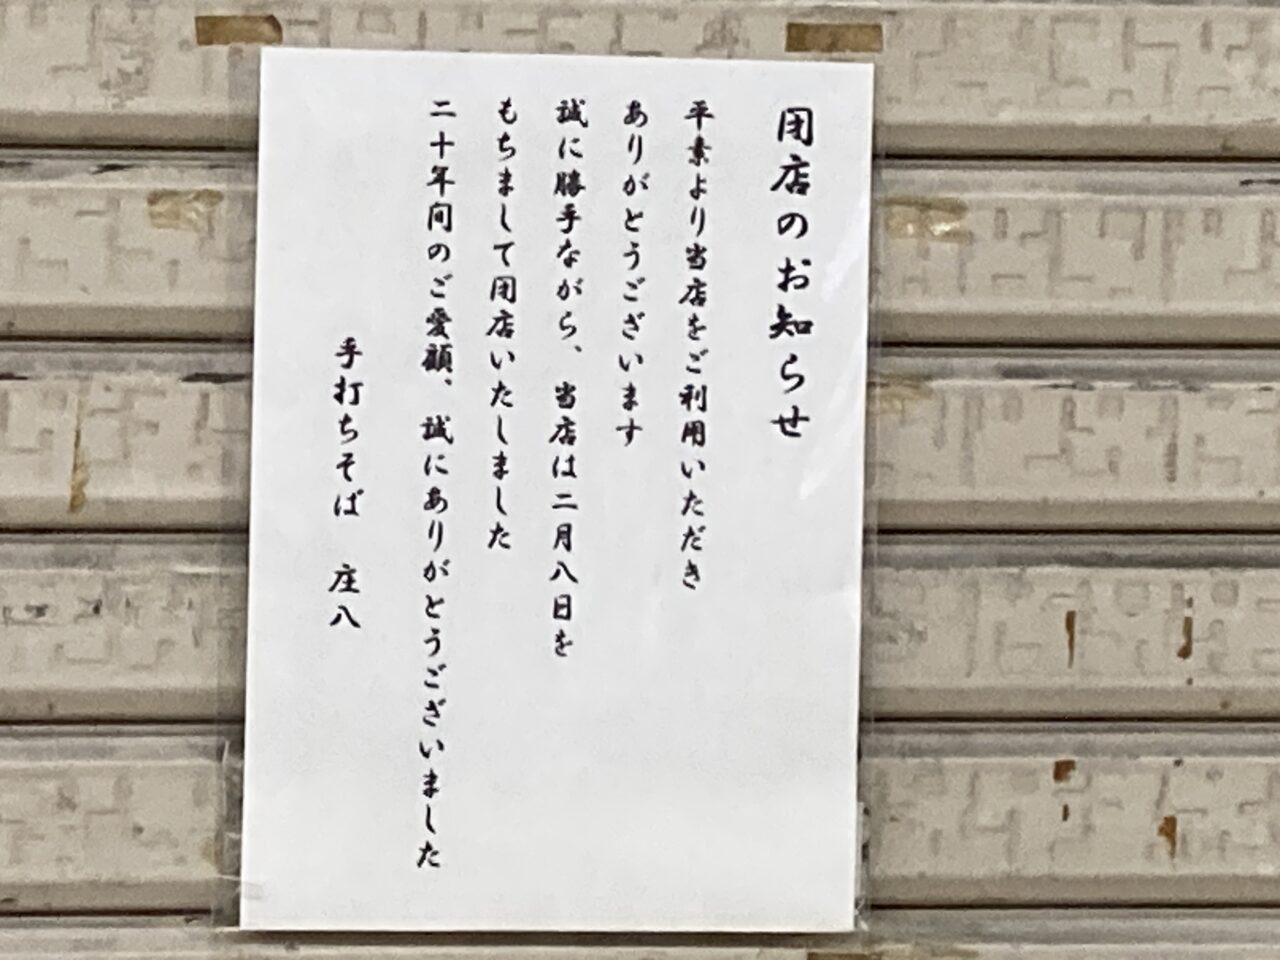 閉店のお知らせ
平素より当店をご利用いただき
ありがとうございます
誠に勝手ながら、当店は二月八日を
もちまして閉店いたしました
二十年間のご愛顧、誠にありがとうございました
手打ちそば　庄八